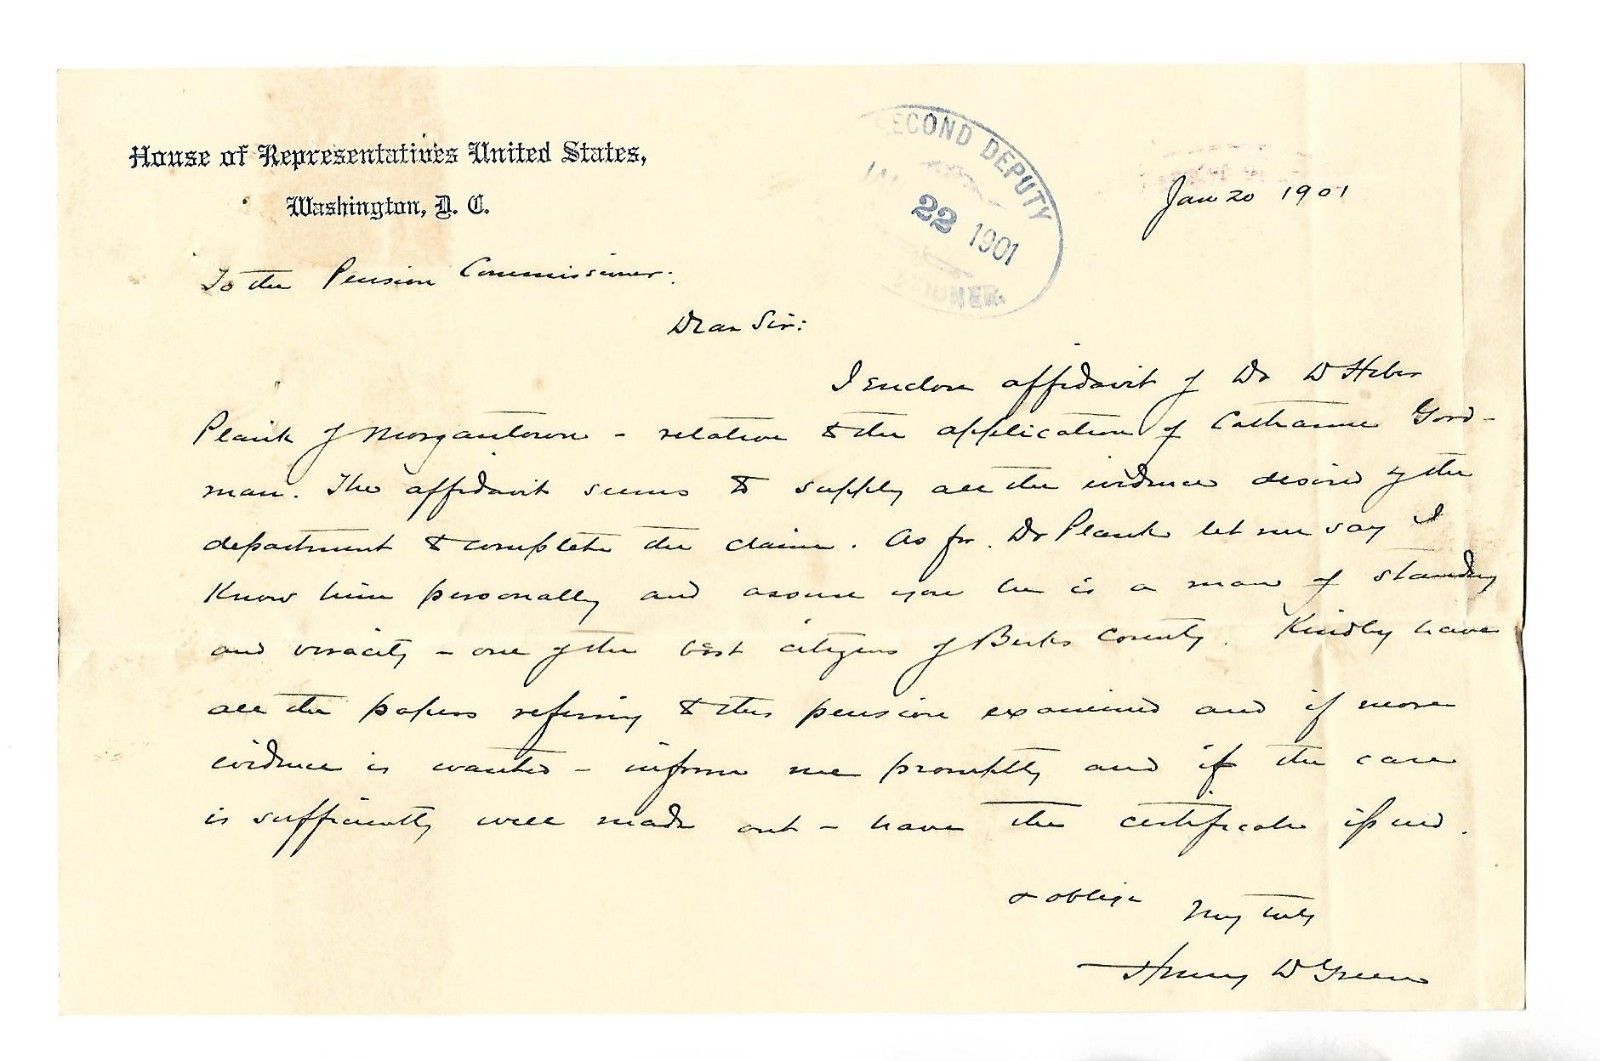 House of Representatives United States,
Washington, D. C.
SECOND DEPUTY
JAN 22 1901
Jan 20 1901
To the Pension Commissioner:
Dear Sir:
I enclose affidavit of Dr D Heber
Plank of Morgantown - relative to the application of Catharine Gord-
man. The affidavit seems to supply all the evidence desired by the
department to complete the claim. As for Dr Plank let me say I
know him personally and assure you he is a man of standing
and veracity - one of the best citizens of Berks County. Kindly have
all the papers referring to this pension examined and if more
evidence is wanted - inform me promptly and if the case
is sufficiently well made out - have the certificate issued.
& oblige Very truly
Henry D Green